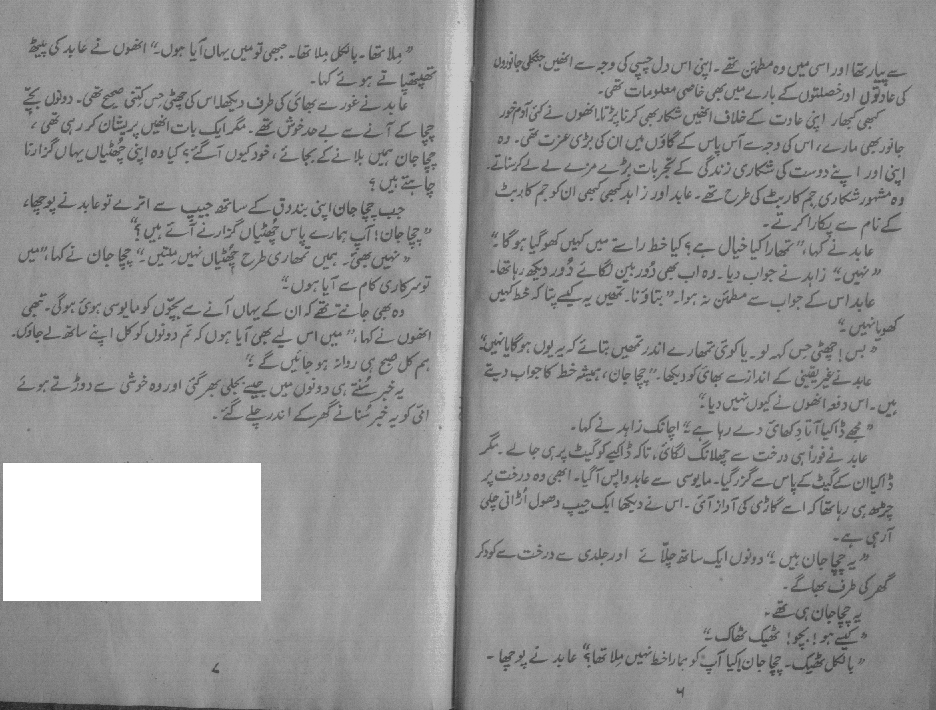 سے پیار تھا اور اسی میں وہ مطمئن تھے۔ اپنی اس دل چسپی کی وجہ سے انھیں جنگلی جانوروں
کی عادتوں اور خصلتوں کے بارے میں بھی خاصی معلومات تھی۔
کبھی کبھار اپنی عادت کے خلاف انھیں شکار بھی کرنا پڑتا۔ انھوں نے کئی آدم خور
جانور بھی مارے، اس کی وجہ سے آس پاس کے گاؤں میں ان کی بڑی عزت تھی۔ وہ
اپنی اور اپنے دوست کی شکاری زندگی کے تجربات بڑے مزے لے لے کر سناتے۔
وہ مشہور شکاری جم کاربٹ کی طرح تھے۔ عابد اور زاہد کبھی کبھی ان کو جم کاربٹ
کے نام سے پکارا کرتے۔
عابد نے کہا، "تمھارا کیا خیال ہے؟ کیا خط راستے میں کہیں کھو گیا ہوگا۔"
"نہیں" زاہد نے جواب دیا۔ وہ اب بھی دُوربین لگائے دُور دیکھ رہا تھا۔
عابد اس کے جواب سے مطمئن نہ ہوا۔ "بتاؤ نا۔ تمھیں یہ کیسے پتا کہ خط کہیں
کھویا نہیں۔"
"بس! چھٹی حِس کہہ لو۔ یا کوئی تمھارے اندر تمھیں بتائے کہ یہ یوں ہوگا یا نہیں۔"
عابد نے غیر یقینی کے انداز سے بھائی کو دیکھا۔ "چچا جان، ہمیشہ خط کا جواب دیتے
ہیں۔ اس دفعہ انھوں نے کیوں نہیں دیا۔"
"مجھے ڈاکیا آتا دکھائی دے رہا ہے۔" اچانک زاہد نے کہا۔
عابد نے فوراً ہی درخت سے چھلانگ لگائی، تاکہ ڈاکیے کو گیٹ پر ہی جا لے۔ مگر
ڈاکیا ان کے گیٹ کے پاس سے گزر گیا۔ مایوسی سے عابد واپس آگیا۔ ابھی وہ درخت پر
چڑھ ہی رہا تھا کہ اسے گاڑی کی آواز آئی۔ اس نے دیکھا ایک جیپ دھول اُڑاتی چلی
آرہی ہے۔
"یہ چچا جان ہیں۔" دونوں ایک ساتھ چلّائے اور جلدی سے درخت سے کود کر
گھر کی طرف بھاگے۔
یہ چچا جان ہی تھے۔
"کیسے ہو! بچو! ٹھیک ٹھاک۔"
"بالکل ٹھیک۔ چچا جان! کیا آپ کو ہمارا خط نہیں مِلا تھا؟" عابد نے پوچھا۔
۶
"مِلا تھا۔ بالکل مِلا تھا۔ جبھی تو میں یہاں آیا ہوں۔" انھوں نے عابد کی پیٹھ
تھپتھپاتے ہوئے کہا۔
عابد نے غور سے بھائی کی طرف دیکھا۔ اس کی چھٹی حِس کتنی صحیح تھی۔ دونوں بچّے
چچا کے آنے سے بے حد خوش تھے۔ مگر ایک بات انھیں پریشان کر رہی تھی،
چچا جان ہمیں بلانے کے بجائے، خود کیوں آگئے؟ کیا وہ اپنی چھُٹیاں یہاں گزارنا
چاہتے ہیں؟
جب چچا جان اپنی بندوق کے ساتھ جیپ سے اترے تو عابد نے پوچھا،
"چچا جان! آپ ہمارے پاس چھُٹیاں گزارنے آئے ہیں؟"
"نہیں بھئی۔ ہمیں تمھاری طرح چھُٹیاں نہیں مِلتیں۔" چچا جان نے کہا، "میں
تو سرکاری کام سے آیا ہوں۔"
وہ بھی جانتے تھے کہ ان کے یہاں آنے سے بچّوں کو مایوسی ہوئی ہوگی۔ تبھی
انھوں نے کہا، "میں اس لیے بھی آیا ہوں کہ تم دونوں کو کل اپنے ساتھ لے جاؤں۔
ہم کل صبح ہی روانہ ہو جائیں گے۔"
یہ خبر سُنتے ہی دونوں میں جیسے بجلی بھر گئی اور وہ خوشی سے دوڑتے ہوئے
امّی کو یہ خبر سُنانے گھر کے اندر چلے گئے۔
۷